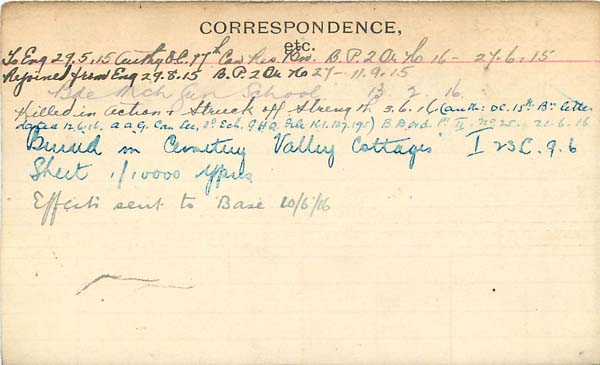 CORRESPONDENCE,
etc.
To Eng 29.5.15 (Auth: O.C. 17th Cav Res. Rn). B.P.2 Or No 16 - 27.6.15
Rejoined from Eng 29.8.15 B.P.2 Or No 27 - 11.9.15
Bde Mch Gun School 13. 2. 16.
Killed in action & Struck off Strength 3.6.16 (auth: OC. 15th Bn letter
dated 12.6.16, A.A.G. Can Sec, 3d Ech. G.H.Q. File K1.127.195) B.B.ord. Pt II No 25. 21-6-16
Buried in Cemetery Valley Cottages I 23 C. 9. 6
Sheet 1/10000
Effects sent to Base 10/6/16